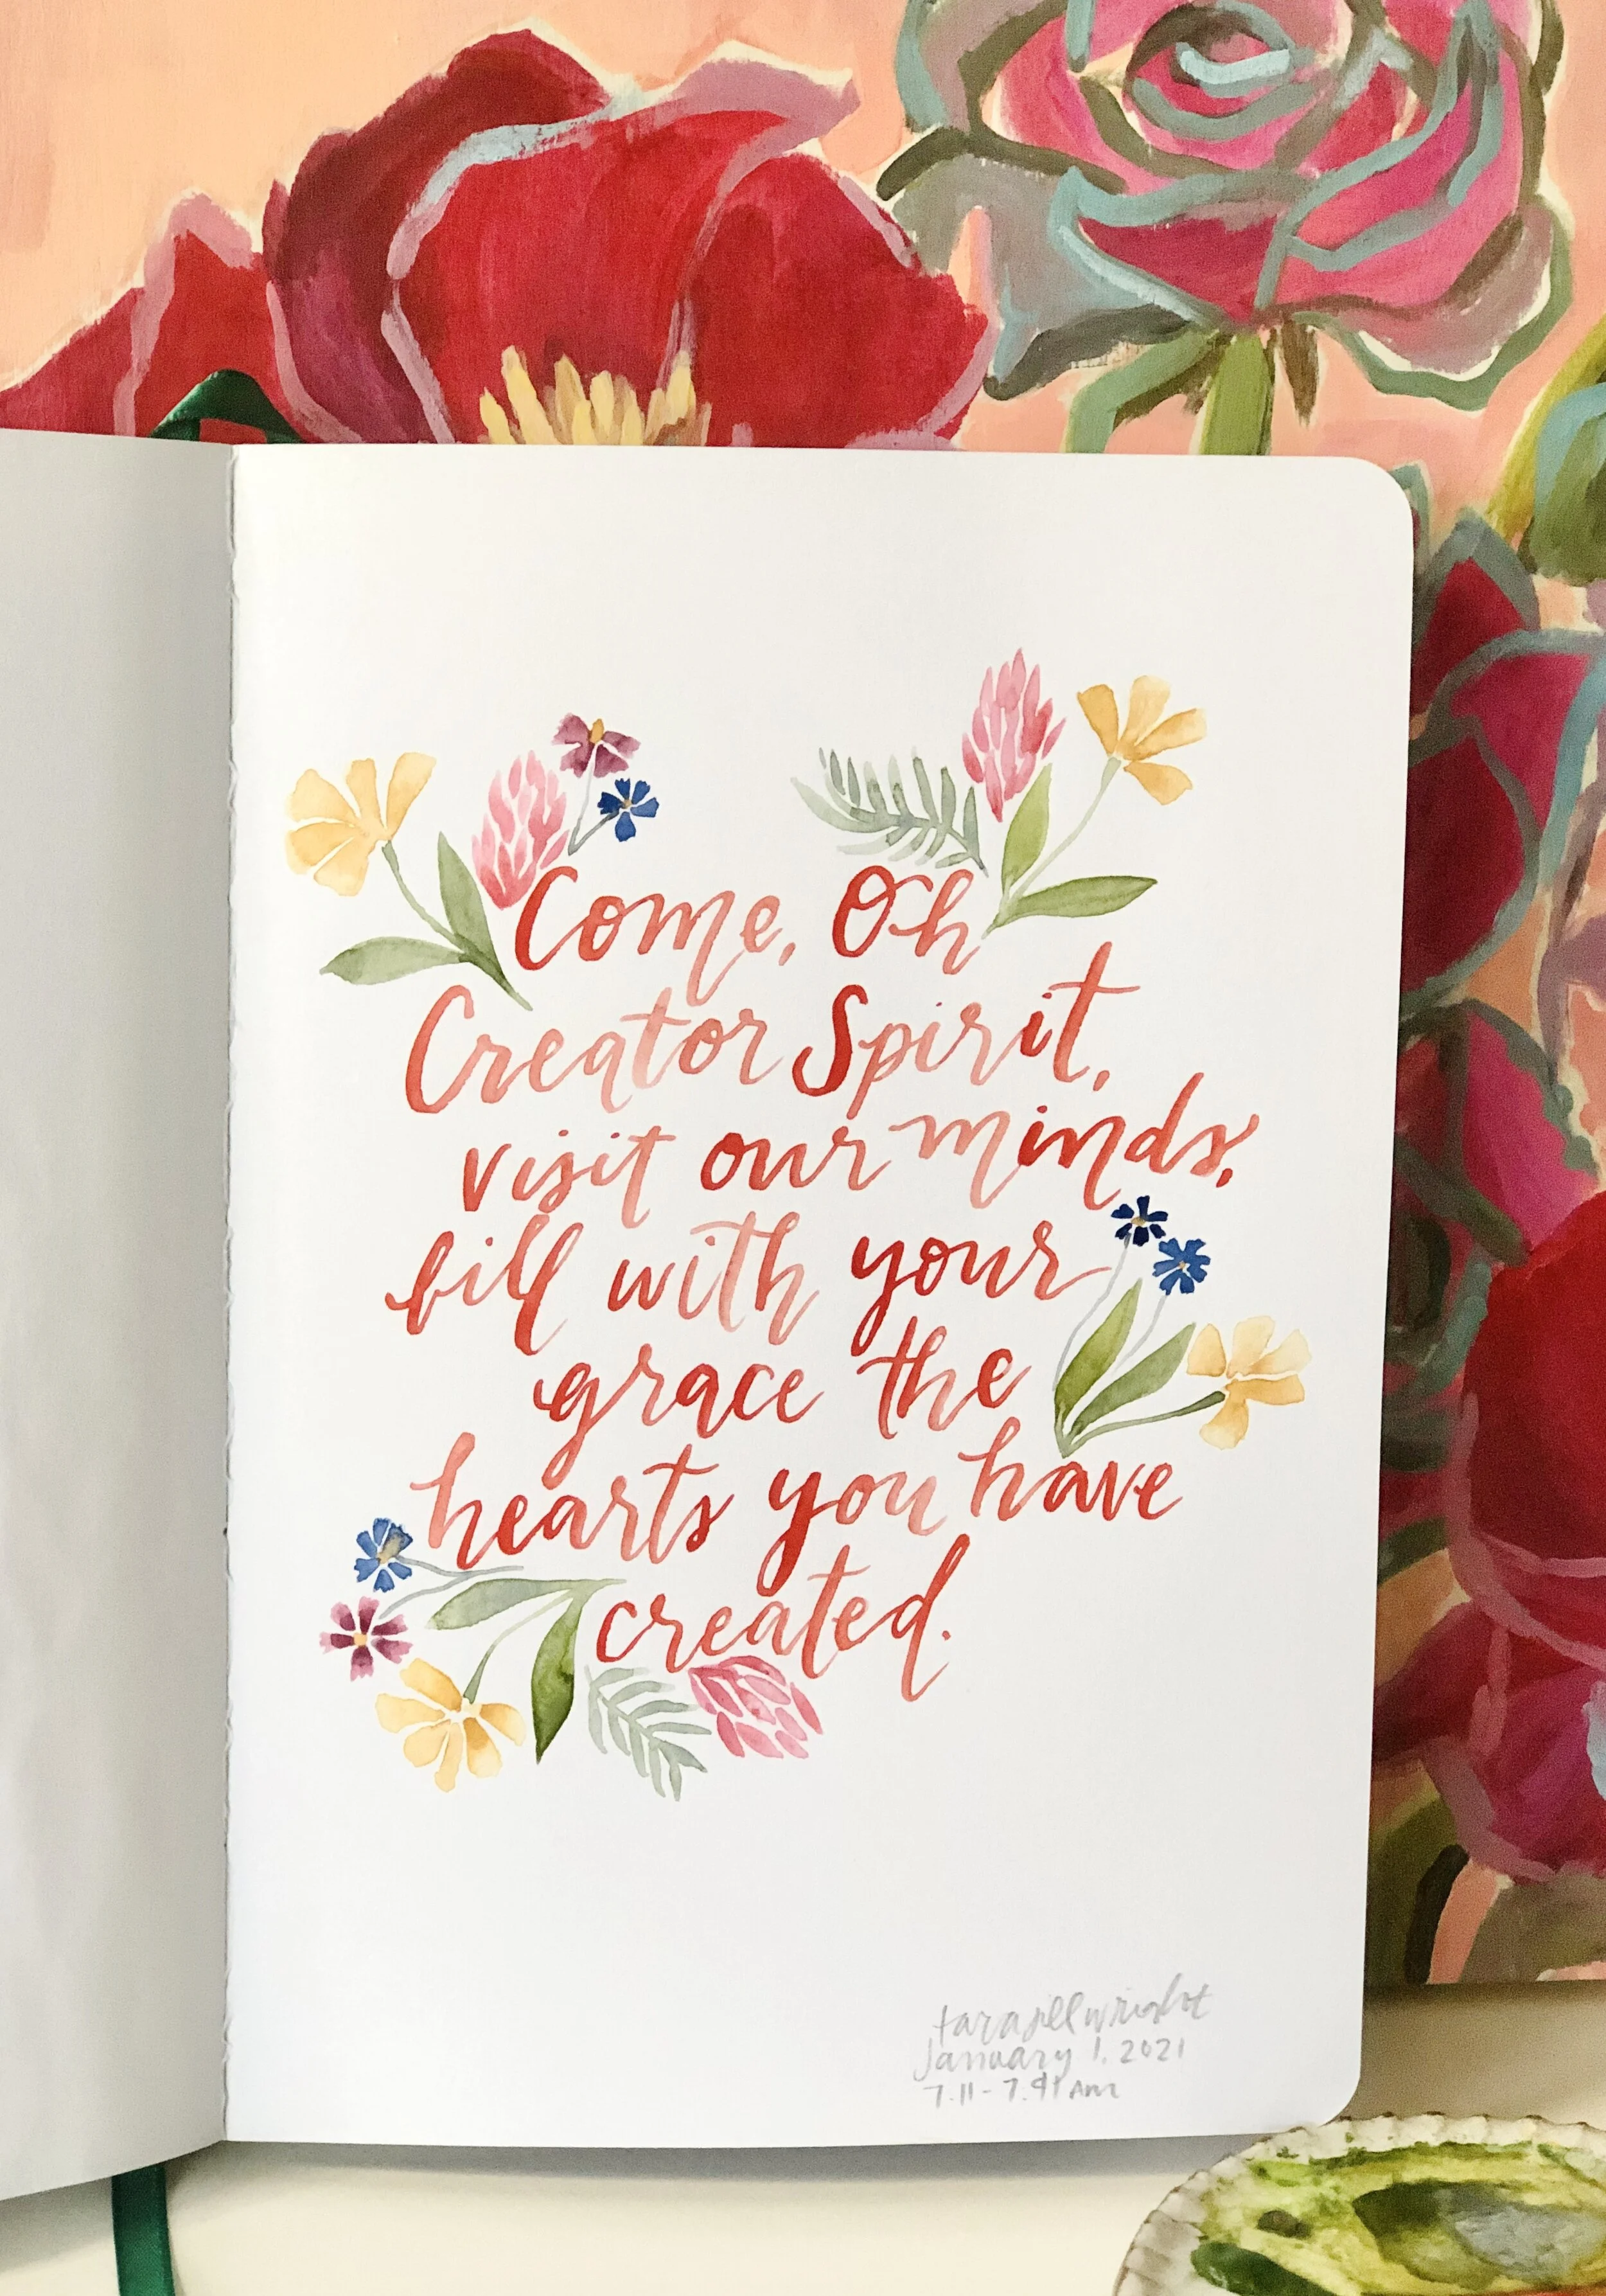 Come, Oh
Creator Spirit,
visit our minds,
fill with your
grace the
hearts you have
created.
tarajillwright
January 1, 2021
7.11 - 7.41 AM